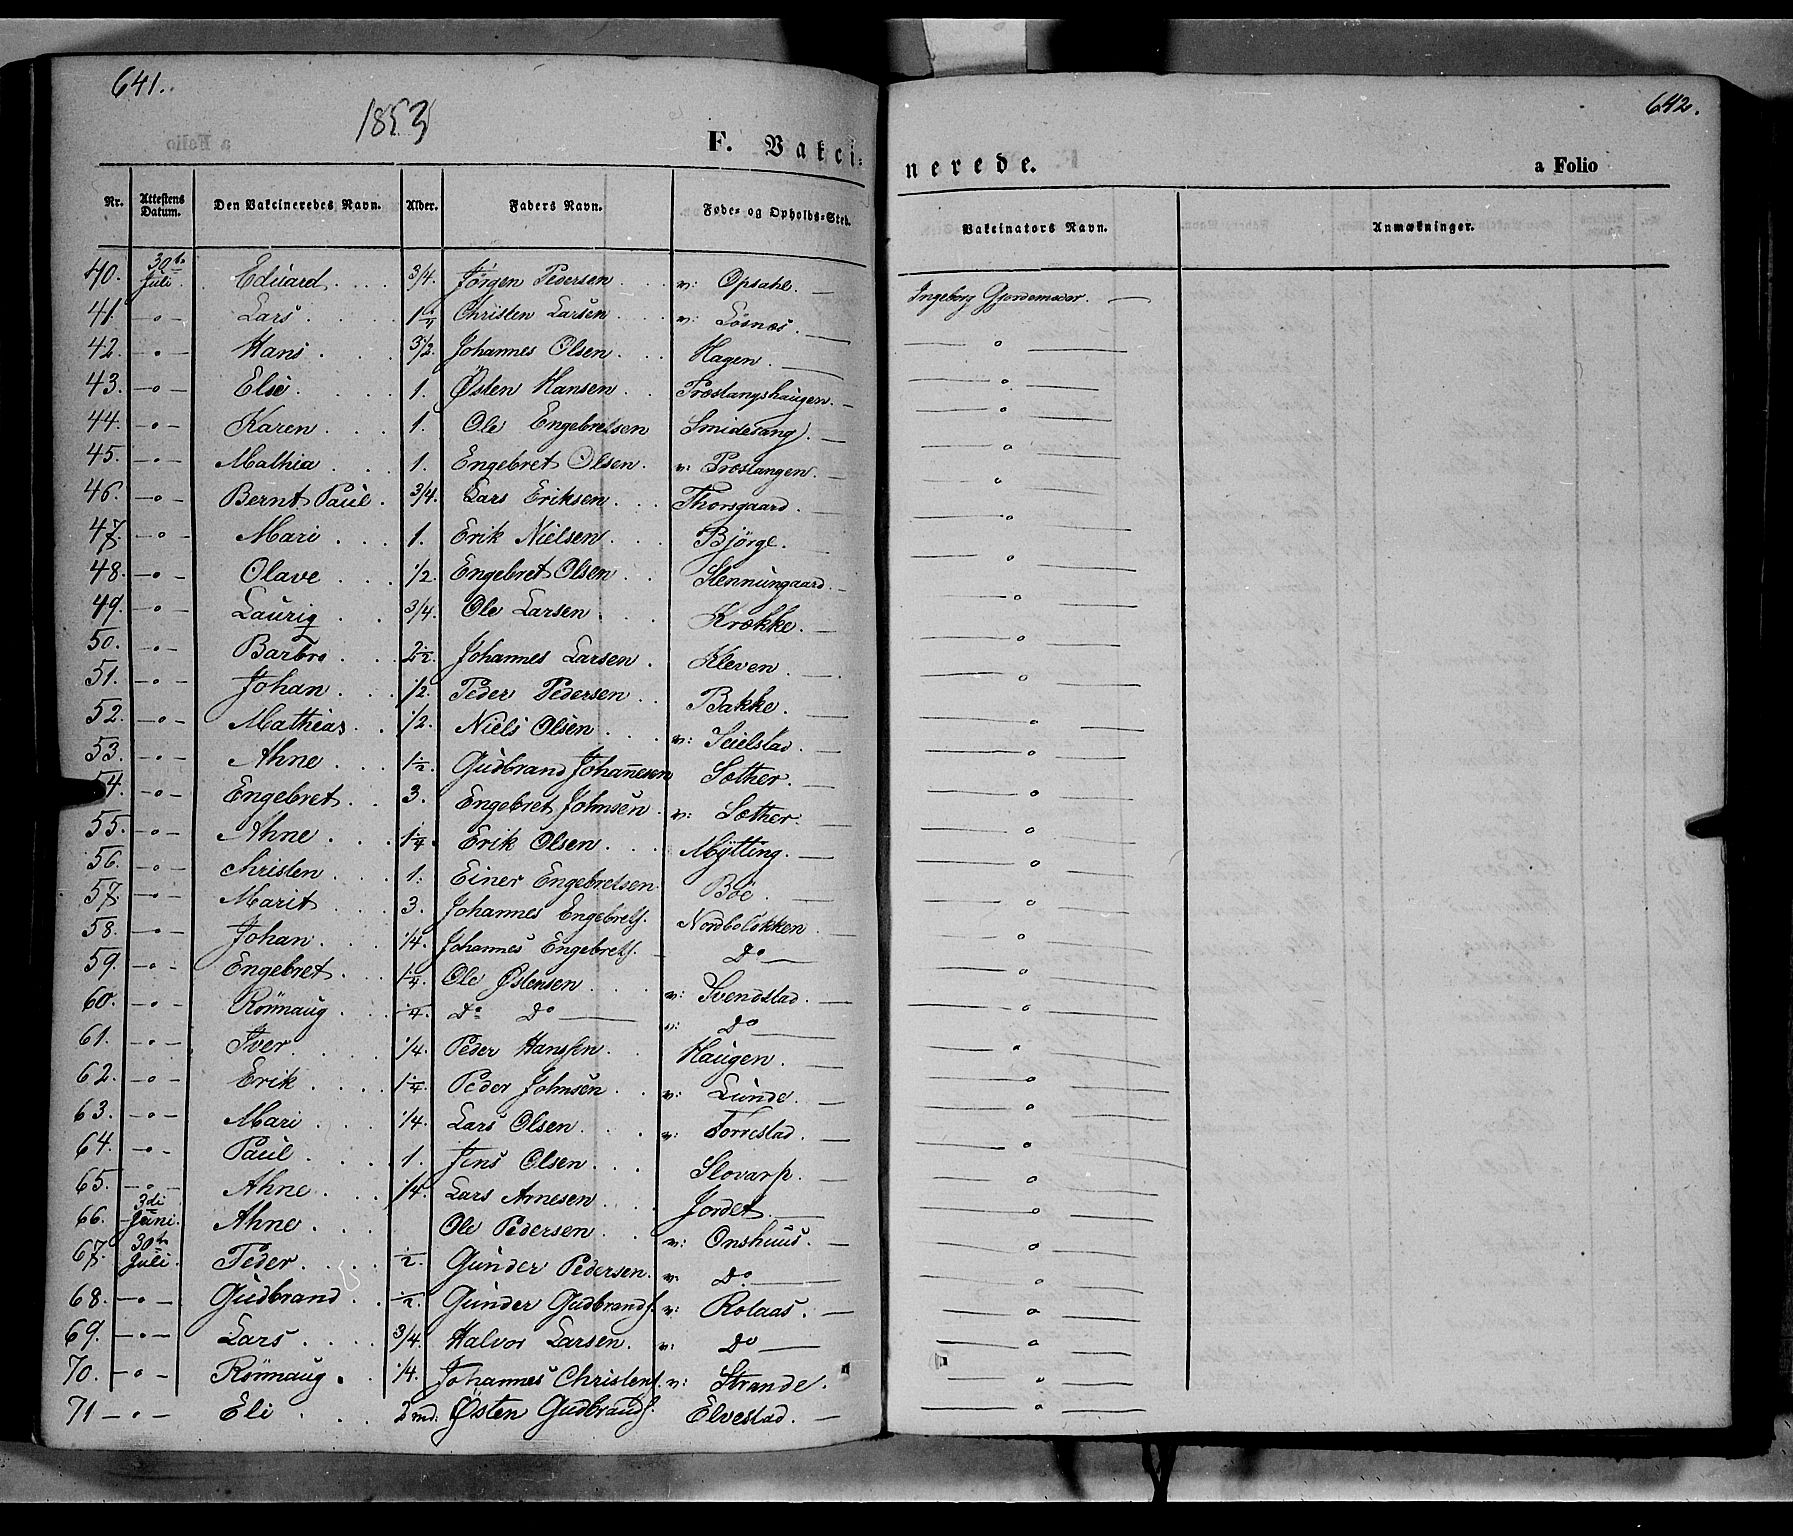 641.
1853
F. Vakci-
Nr. Attestens Datum. Den Vakcineredes Navn. Alder. Faders Navn. Føde- og Opholds-Sted.
40. 30te Juli Eduard 3/4. Jørgen Pedersen v: Opsahl.
41. -"- Lars 1 1/4 Christen Larsen v: Løsnæs.
42. -"- Hans 3 1/2. Johannes Olsen Hagen.
43. -"- Else 1. Østen Hansen Præstangshaugen.
44. -"- Karen 1. Ole Engebretsen Smidesang
45. -"- Mathia 1. Engebret Olsen. v: Præstangen.
46. -"- Bernt Paul 3/4. Lars Eriksen Thorsgaard.
47. -"- Mari 1. Erik Nielsen Bjørge.
48. -"- Olave 1/2. Engebret Olsen Stennungaard.
49. -"- Laurig 3/4. Ole Larsen Krække.
50. -"- Barbro 2 1/2. Johannes Larsen Kleven
51. -"- Johan 1/2. Peder Pedersen Bakke.
52. -"- Mathias 1/2. Niels Olsen v: Seielstad.
53. -"- Ahne 1 1/2. Gudbrand Johannesen Sæther.
54. -"- Engebret 3. Engebret Johnsen v: Sæther.
55. -"- Ahne 1 1/4. Erik Olsen Mÿtting.
56. -"- Christen 1. Einer Engebretsen Böe
57. -"- Marit 3. Johannes Engebrets. Nordboløkken
58. -"- Johan 1/4. Johannes Engebrets. Do
59. -"- Engebret 1 1/4. Ole Østensen v: Svendstad.
60. -"- Rönnaug 1/4. Do Do v: Do
61. -"- Iver 1/4. Peder Hanssen Haugen.
62. -"- Erik 1 1/4. Peder Johnsen v: Lunde.
63. -"- Mari 1/4. Lars Olsen v: Forrestad.
64. -"- Paul 1. Jens Olsen Slovarp.
65. -"- Ahne 1/4. Lars Arnesen Jordet.
66. 3di Juni. Ahne Ole Pedersen v: Onshuus.
67. 30te Juli. Peder 1/2. Gunder Pedersen. v: Do
68. -"- Gudbrand 1/2. Gunder Gudbrands. v: Rolaas.
69. -"- Lars 3/4. Halvor Larsen. v: Do
70. -"- Rönnaug 1/4. Johannes Christens. v: Strande.
71 -"- Eli 2 md. Østen Gudbrands. Elvestad.
642.
nerede.
a Folio
Vakcinators Navn. Anmærkninger.
Ingeborg Gjordemoder.